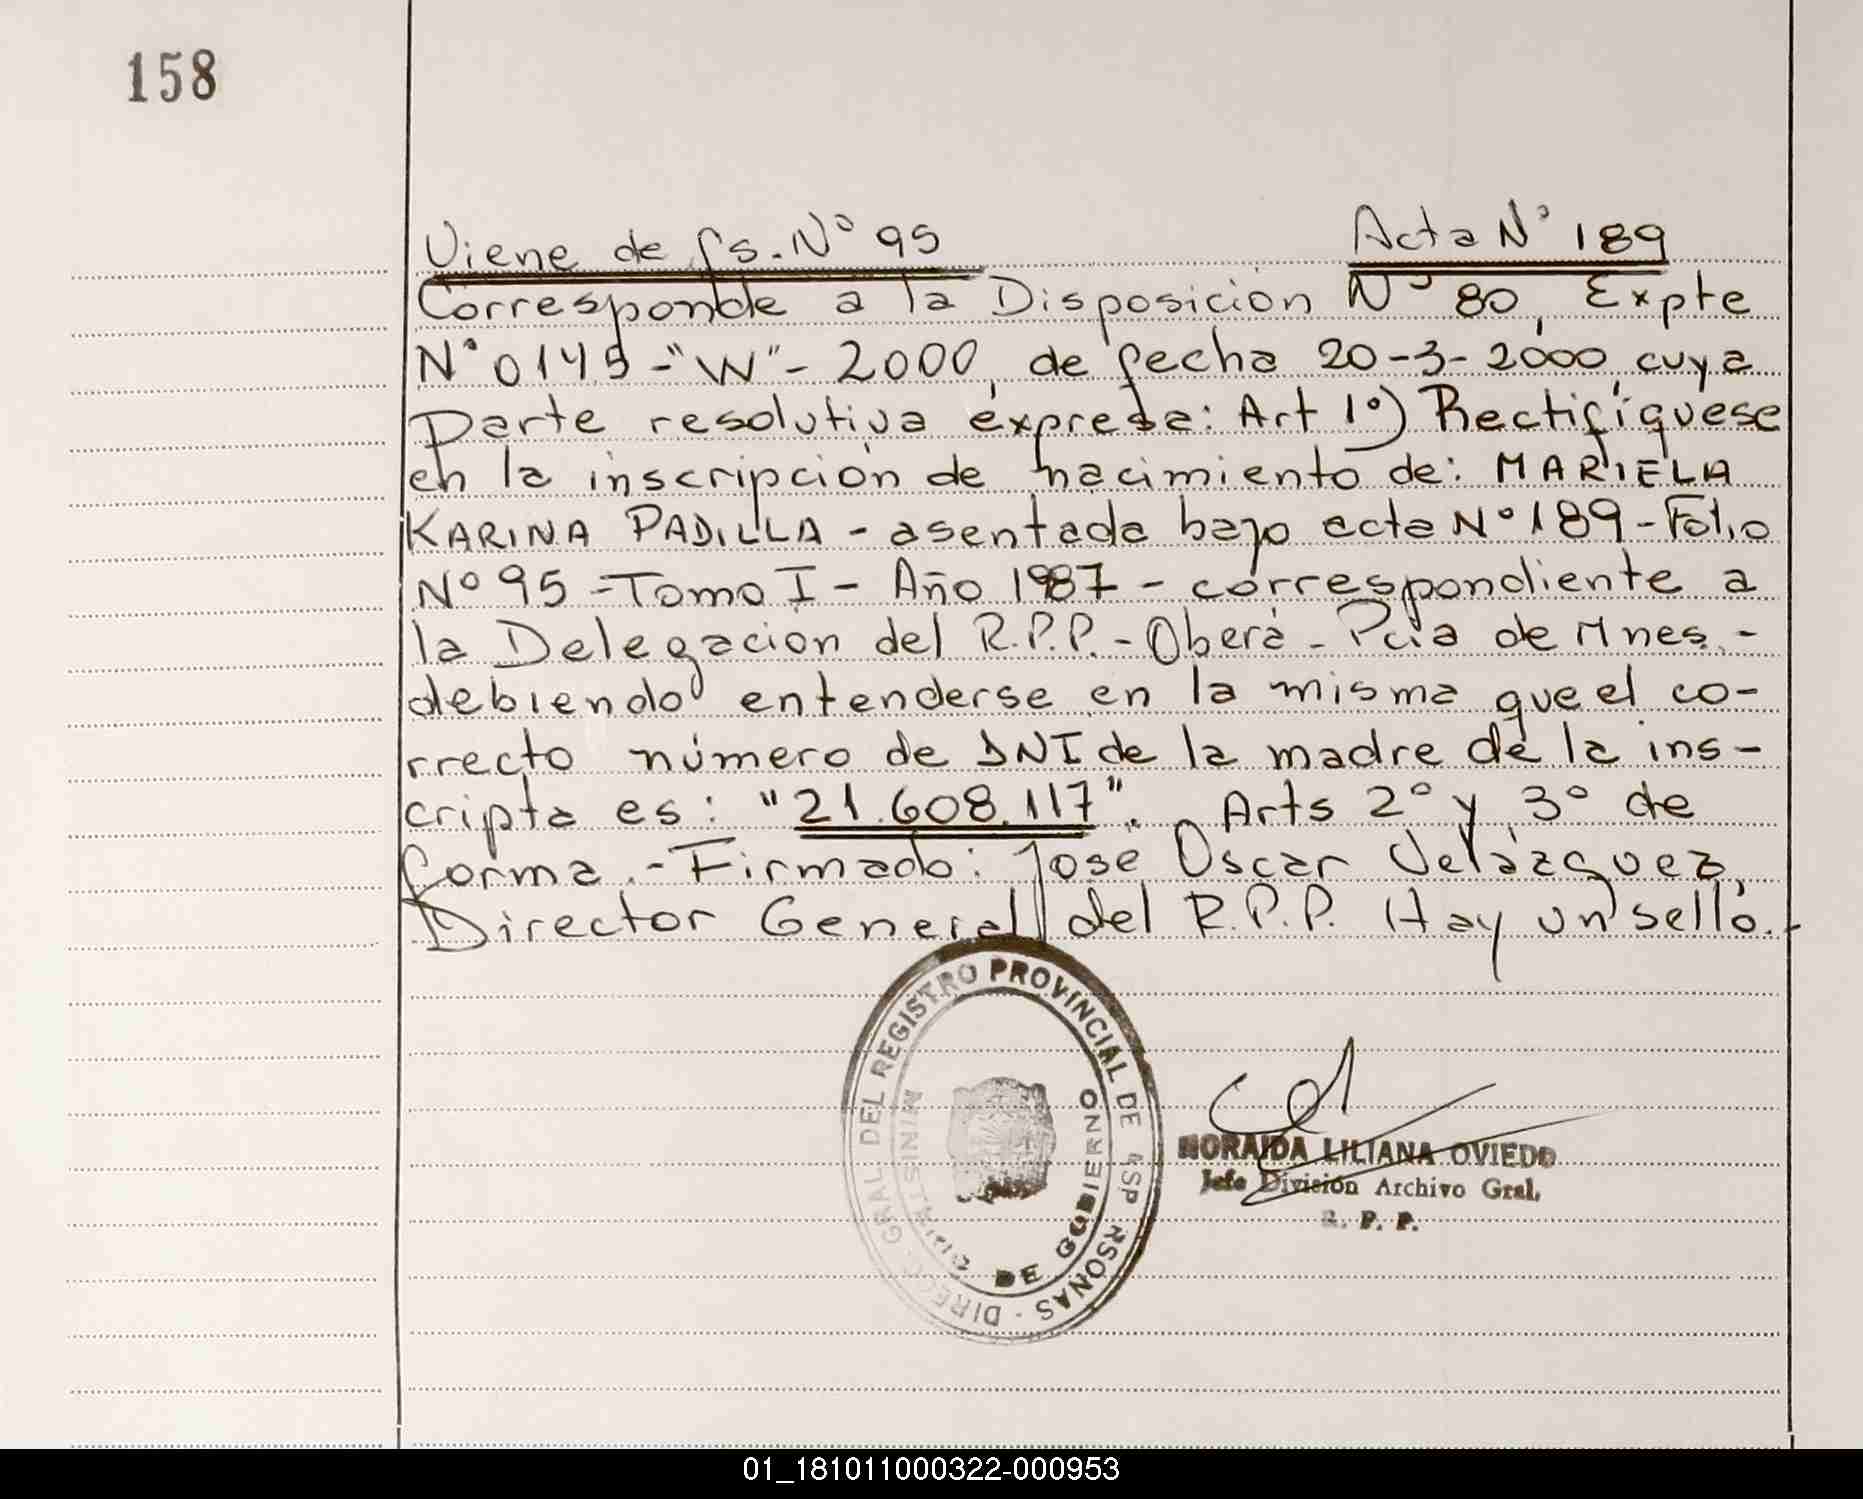 158
Viene de fs. Nº 95 Acta Nº 189
Corresponde a la Disposición Nº 80, Expte
Nº 0145-"W"- 2000, de fecha 20-3-2000, cuya
parte resolutiva expresa: Art 1º) Rectifíquese
en la inscripción de nacimiento de: MARIELA
KARINA PADILLA - asentada bajo acta Nº 189 - Folio
Nº 95 - Tomo I - Año 1987 - correspondiente a
la Delegación del R.P.P. - Oberá - Pcia de Mnes. -
debiendo entenderse en la misma que el co-
rrecto número de DNI de la madre de la ins-
cripta es: "21.608.117". Arts 2º y 3º de
forma. - Firmado: José Oscar Velázquez,
Director General del R.P.P. Hay un sello. -
DIREC. GRAL DEL REGISTRO PROVINCIAL DE LAS PERSONAS
MINISTERIO DE GOBIERNO
NORAIDA LILIANA OVIEDO
Jefe División Archivo Gral.
R. P. P.
01_181011000322-000953